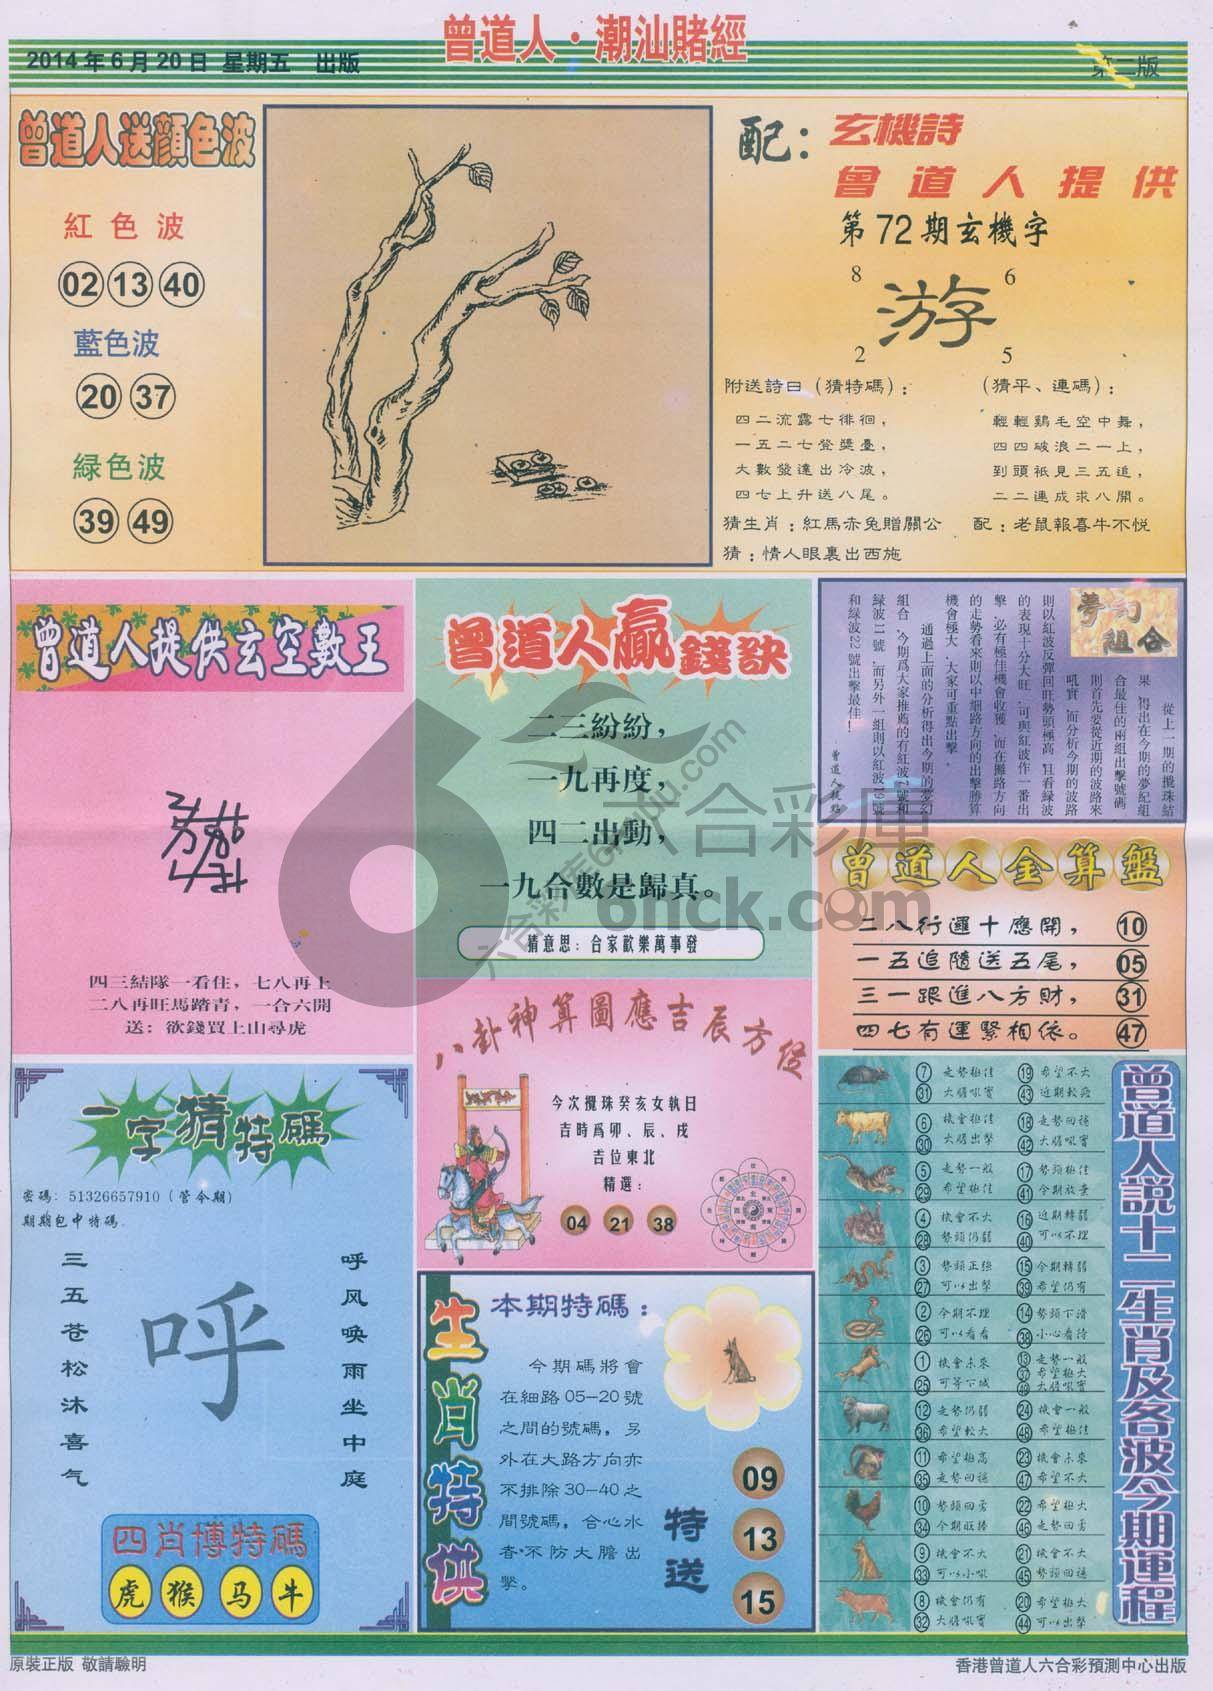 曾道人·潮汕賭經
2014年6月20日 星期五 出版
第二版
曾道人送顔色波
紅色波
02 13 40
藍色波
20 37
緑色波
39 49
配：
玄機詩
曾道人提供
第72期玄機字
8 6
游
2 5
附送詩曰（猜特碼）：
四二流露七徘徊，
一五二七登獎臺，
大數發達出冷波，
四七上升送八尾。
（猜平、連碼）：
輕輕鷄毛空中舞，
四四破浪二一上，
到頭衹見三五追，
二二連成求八開。
猜生肖：紅馬赤兔贈關公
配：老鼠報喜牛不悦
猜：情人眼裏出西施
曾道人提供玄空數王
四三結隊一看住，七八再上
二八再旺馬踏青，一合六開
送：欲錢買上山尋虎
曾道人贏錢訣
二三紛紛，
一九再度，
四二出動，
一九合數是歸真。
猜意思：合家歡樂萬事發
夢幻
組合
從上一期的攪珠結
果，得出在今期的夢紀組
合最佳的兩組出擊號碼，
則首先要從近期的波路來
吼實，而分析今期的波路
則以紅波反彈回旺勢頭極高，且看緑波
的表現十分大旺，可與紅波作一番出
擊，必有極佳機會收獲，而在攤路方向
的走勢看來則以中細路方向的出擊勝算
機會極大，大家可重點出擊。
通過上面的分析得出今期的夢幻
組合，今期爲大家推薦的有紅波7號和
緑波11號，而另外一組則以紅波19號
和緑波22號出擊最佳！
曾道人金算盤
二八行運十應開， 10
一五追隨送五尾， 05
三一跟進八方財， 31
四七有運緊相依。 47
八卦神算圖應吉辰方位
今次攪珠癸亥女執日
吉時爲卯、辰、戌
吉位東北
精選：
04 21 38
一字猜特碼
密碼：51326657910（管今期）
期期包中特碼
三五苍松沐喜气
呼
呼风唤雨坐中庭
四肖博特碼
虎 猴 马 牛
生肖特供
本期特碼：
今期碼將會
在細路05—20號
之間的號碼，另
外在大路方向亦
不排除30—40之
間號碼，合心水
者不防大膽出
擊。
特送
09
13
15
曾道人說十二生肖及各波今期運程
7 走勢極佳 19 希望不大
31 大膽吼實 43 近期較疲
6 機會極佳 18 走勢回穩
30 大膽出擊 42 大膽吼實
5 走勢一般 17 勢頭極佳
29 希望極佳 41 今期放棄
4 機會不大 16 近期轉弱
28 勢頭仍弱 40 可以不理
3 勢頭正強 15 今期轉弱
27 可以出擊 39 希望仍有
2 今期不理 14 勢頭下滑
26 可以看看 38 小心看待
1 機會未來 13 走勢一般
25 可等下城 37 希望極大
49 大膽吼實
12 走勢仍弱 24 機會一般
36 希望較大 48 希望極佳
11 希望極高 23 機會未來
35 走勢回穩 47 希望不大
10 勢頭回勇 22 希望極大
34 今期旺勝 46 走勢回勇
9 機會不大 21 機會不大
33 可以小吼 45 勢頭回穩
8 機會仍有 20 希望極大
32 大膽吼實 44 可以出擊
六合彩庫
6hck.com
原裝正版 敬請驗明
香港曾道人六合彩預測中心出版